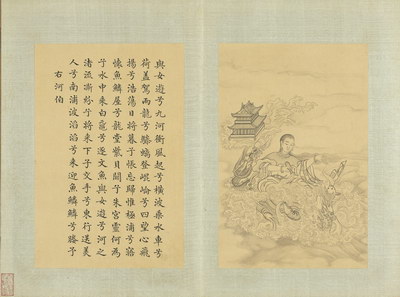 與女遊兮九河衝風起兮橫波乘水車兮
荷蓋駕兩龍兮驂螭登崐崘兮四望心飛
揚兮浩蕩日將暮兮悵忘歸惟極浦兮寤
懷魚鱗屋兮龍堂紫貝闕兮朱宮靈何為
兮水中乘白黿兮逐文魚與女遊兮河之
渚流澌紛兮將來下子交手兮東行送美
人兮南浦波滔滔兮來迎魚鱗鱗兮媵予
右河伯